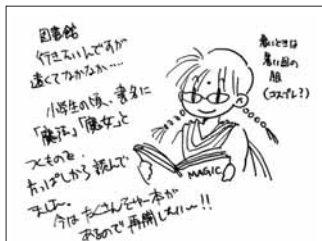 図書館
行きたいんですが
遠くてなかなか‥‥
小学生の頃、書名に
「魔法」「魔女」と
つくものを、
片っぱしから読んで
ました。
今はたくさんそーゆー本が
あるので再開したい〜!!
暑いときは
暑い国の
服
(コスプレ?)
MAGIC